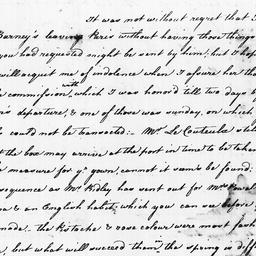 It was not without regret that I
Barney's leaving Paris without having those things
you had requested might be sent by him, but I hope
will acquit me of indolence when I assure her tha
commission, with which I was honor'd till two days b
's departure, & one of those was sunday, on which
could not be transacted:- Mr. Le Couteulx
t the box may arrive at the port in time to be taken
measure for yr gown, cannot it seems be found:
sequence as Mr Ridley has sent out for Mrs
a & an English habit, which you can use before
made - the Pistache & rose colour were most fash
, but what will succeed them, the spring is